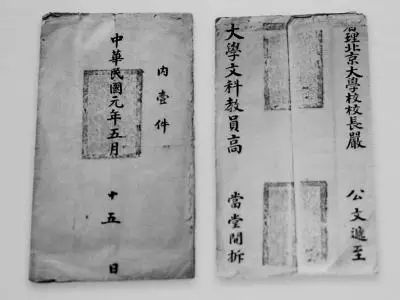 署理北京大學校校長嚴 公文遞至
大學文科教員高 當堂開拆
內壹件
中華民國元年五月十五日